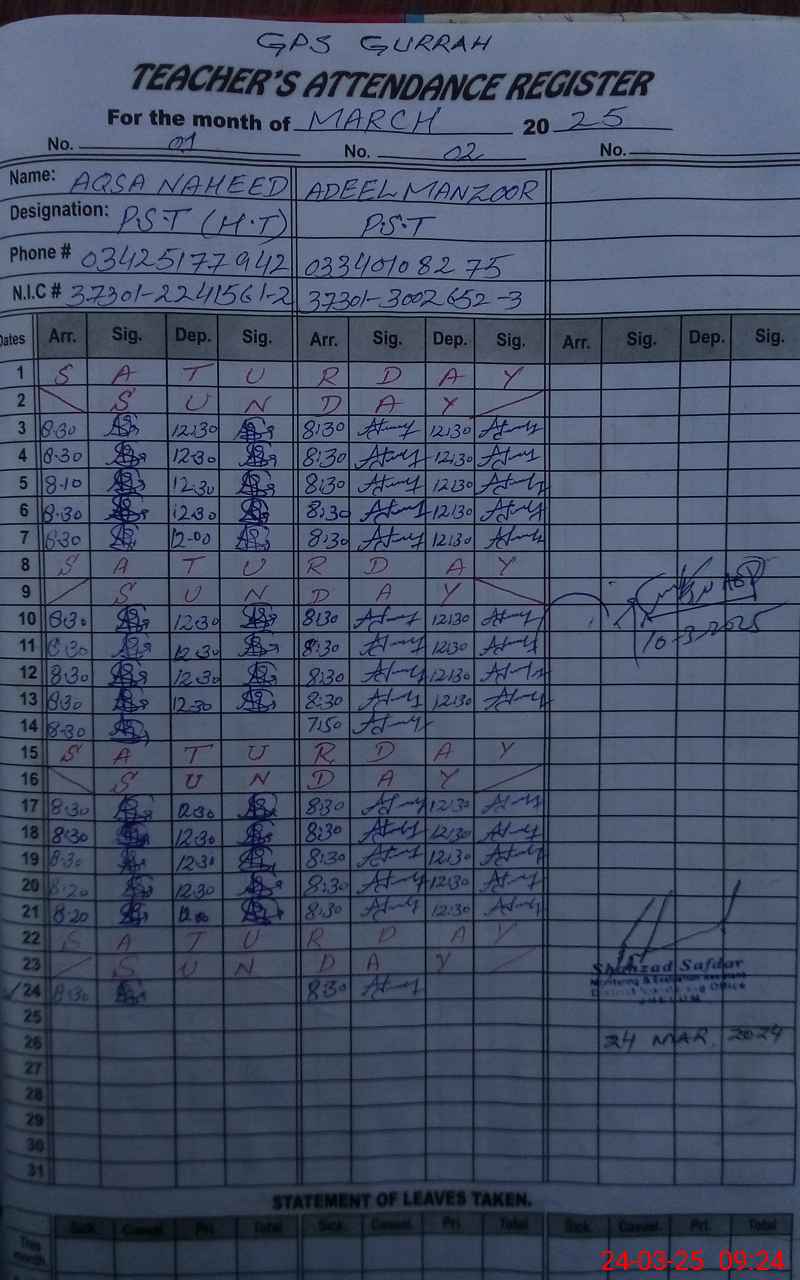 GPS GURRAH
TEACHER'S ATTENDANCE REGISTER
For the month of MARCH 2025
No. 01 No. 02 No.
Name: AQSA NAHEED ADEEL MANZOOR
Designation: P.S.T (H.T) P.S.T
Phone # 03425177942 03340108275
N.I.C # 37301-2241561-2 37301-3002652-3
Dates Arr. Sig. Dep. Sig. Arr. Sig. Dep. Sig. Arr. Sig. Dep. Sig.
1 S A T U R D A Y
2 S U N D A Y
3 8:30 12:30 8:30 12:30
4 8:30 12:30 8:30 12:30
5 8:10 12:30 8:30 12:30
6 8:30 12:30 8:30 12:30
7 8:30 12:00 8:30 12:30
8 S A T U R D A Y
9 S U N D A Y
10 8:30 12:30 8:30 12:30
11 8:30 12:30 8:30 12:30
10-3-2025
12 8:30 12:30 8:30 12:30
13 8:30 12:30 8:30 12:30
14 8:30 7:50
15 S A T U R D A Y
16 S U N D A Y
17 8:30 12:30 8:30 12:30
18 8:30 12:30 8:30 12:30
19 8:30 12:30 8:30 12:30
20 8:20 12:30 8:30 12:30
21 8:20 8:30 12:30
22 S A T U R D A Y
23 S U N D A Y
Shahzad Safdar
Monitoring & Evaluation Assistant
24 8:30 8:30
25
26 24 MAR, 2024
27
28
29
30
31
STATEMENT OF LEAVES TAKEN.
Sick. Casual. Pri. Total Sick. Casual. Pri. Total Sick. Casual. Pri. Total
This month
24-03-25 09:24